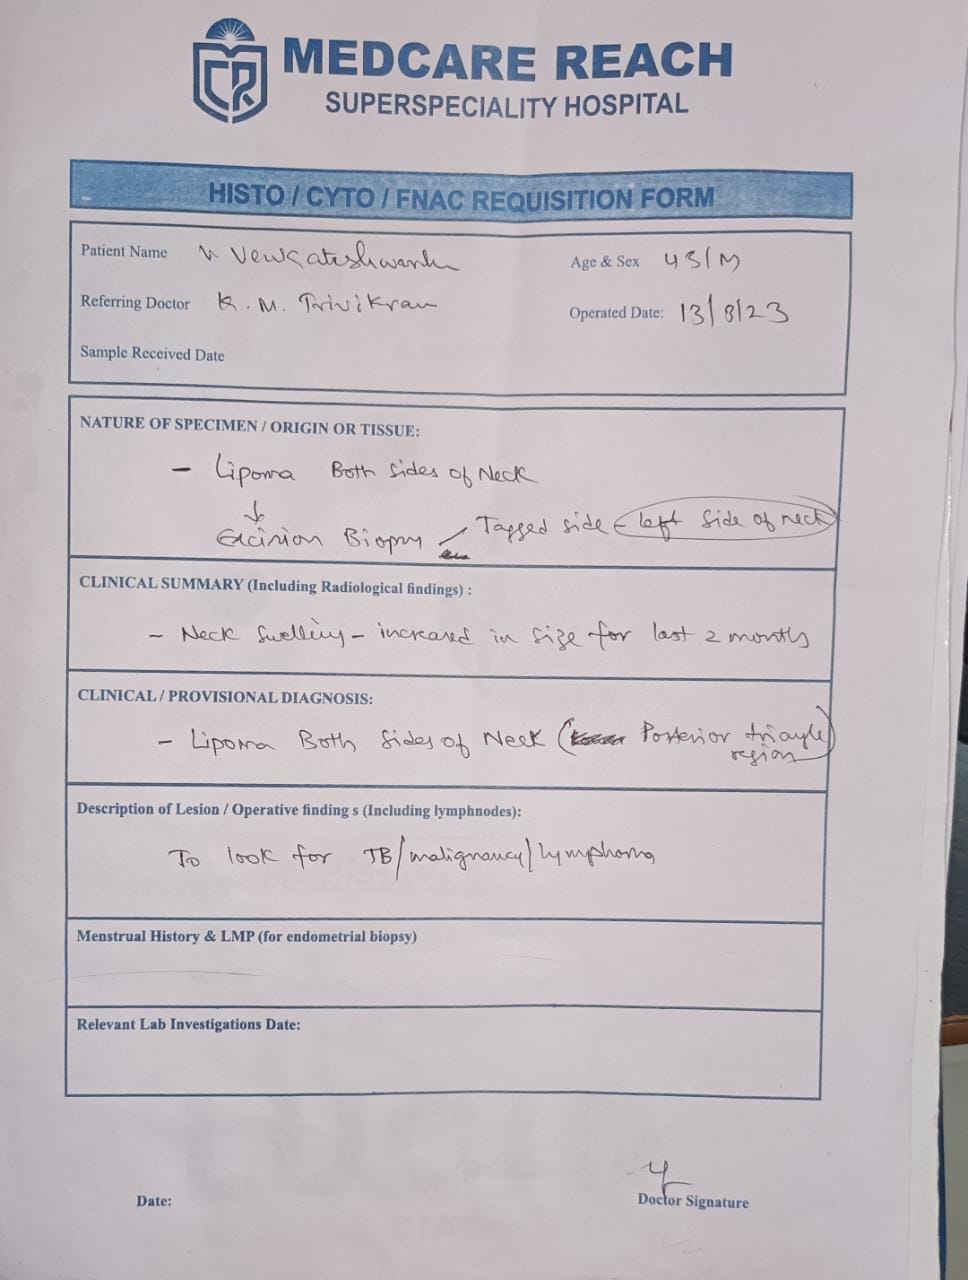 MEDCARE REACH
SUPERSPECIALITY HOSPITAL
HISTO / CYTO / FNAC REQUISITION FORM
Patient Name Venkateshwarlu
Age & Sex 43/M
Referring Doctor K. M. Trivikram
Operated Date: 13/8/23
Sample Received Date
NATURE OF SPECIMEN / ORIGIN OR TISSUE:
- Lipoma Both sides of Neck
↓
Excision Biopsy Tagged side - left side of neck
CLINICAL SUMMARY (Including Radiological findings) :
- Neck swelling - increased in size for last 2 months
CLINICAL / PROVISIONAL DIAGNOSIS:
- Lipoma Both sides of Neck (Posterior triangle region)
Description of Lesion / Operative finding s (Including lymphnodes):
To look for TB/malignancy/lymphoma
Menstrual History & LMP (for endometrial biopsy)
Relevant Lab Investigations Date:
Date:
Doctor Signature